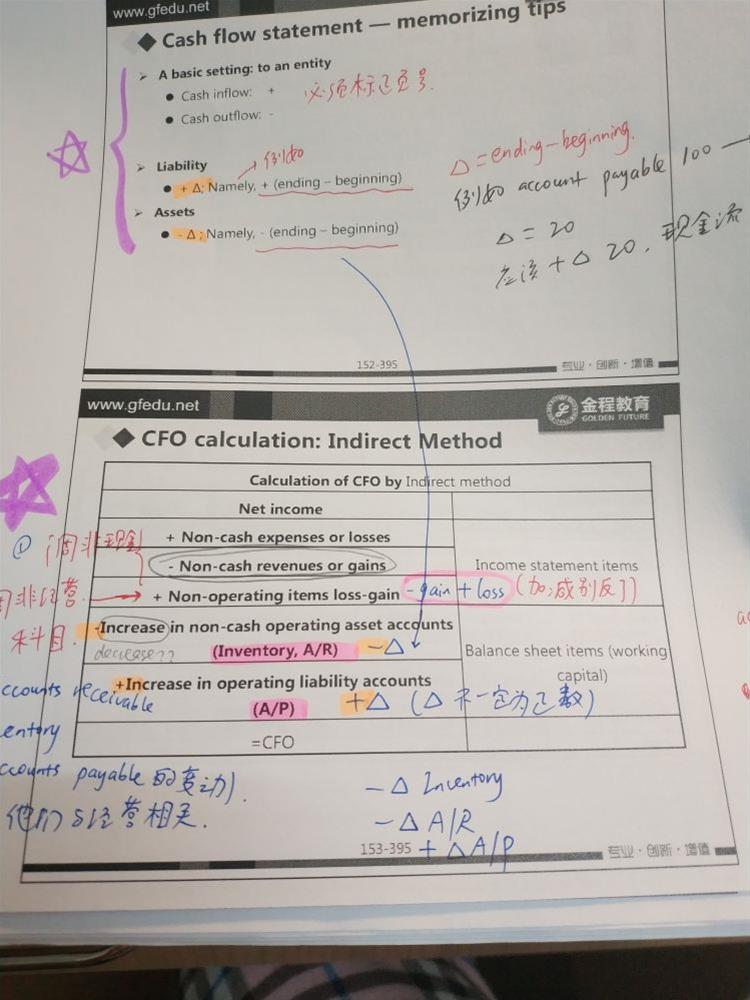 www.gfedu.net
◆ Cash flow statement — memorizing tips
➢ A basic setting: to an entity
● Cash inflow: +
必须标正负号.
● Cash outflow: -
➢ Liability
例如
● + Δ; Namely, + (ending – beginning)
➢ Assets
● - Δ; Namely, - (ending – beginning)
Δ = ending – beginning.
例如 account payable 100 —
Δ = 20
应该 + Δ 20, 现金流
152-395
专业·创新·增值
www.gfedu.net
金程教育
GOLDEN FUTURE
◆ CFO calculation: Indirect Method
Calculation of CFO by Indirect method
Net income
+ Non-cash expenses or losses
- Non-cash revenues or gains
Income statement items
+ Non-operating items loss-gain - gain + loss (加,减别反了)
① 调非现金
非经营
科目.
-Increase in non-cash operating asset accounts
decrease??
(Inventory, A/R) - Δ
Balance sheet items (working capital)
+Increase in operating liability accounts
(A/P) + Δ (Δ 不一定为正数)
=CFO
ccounts receivable
entory
ccounts payable 的变动).
他们与经营相关.
- Δ Inventory
- Δ A/R
+ Δ A/P
153-395
专业·创新·增值